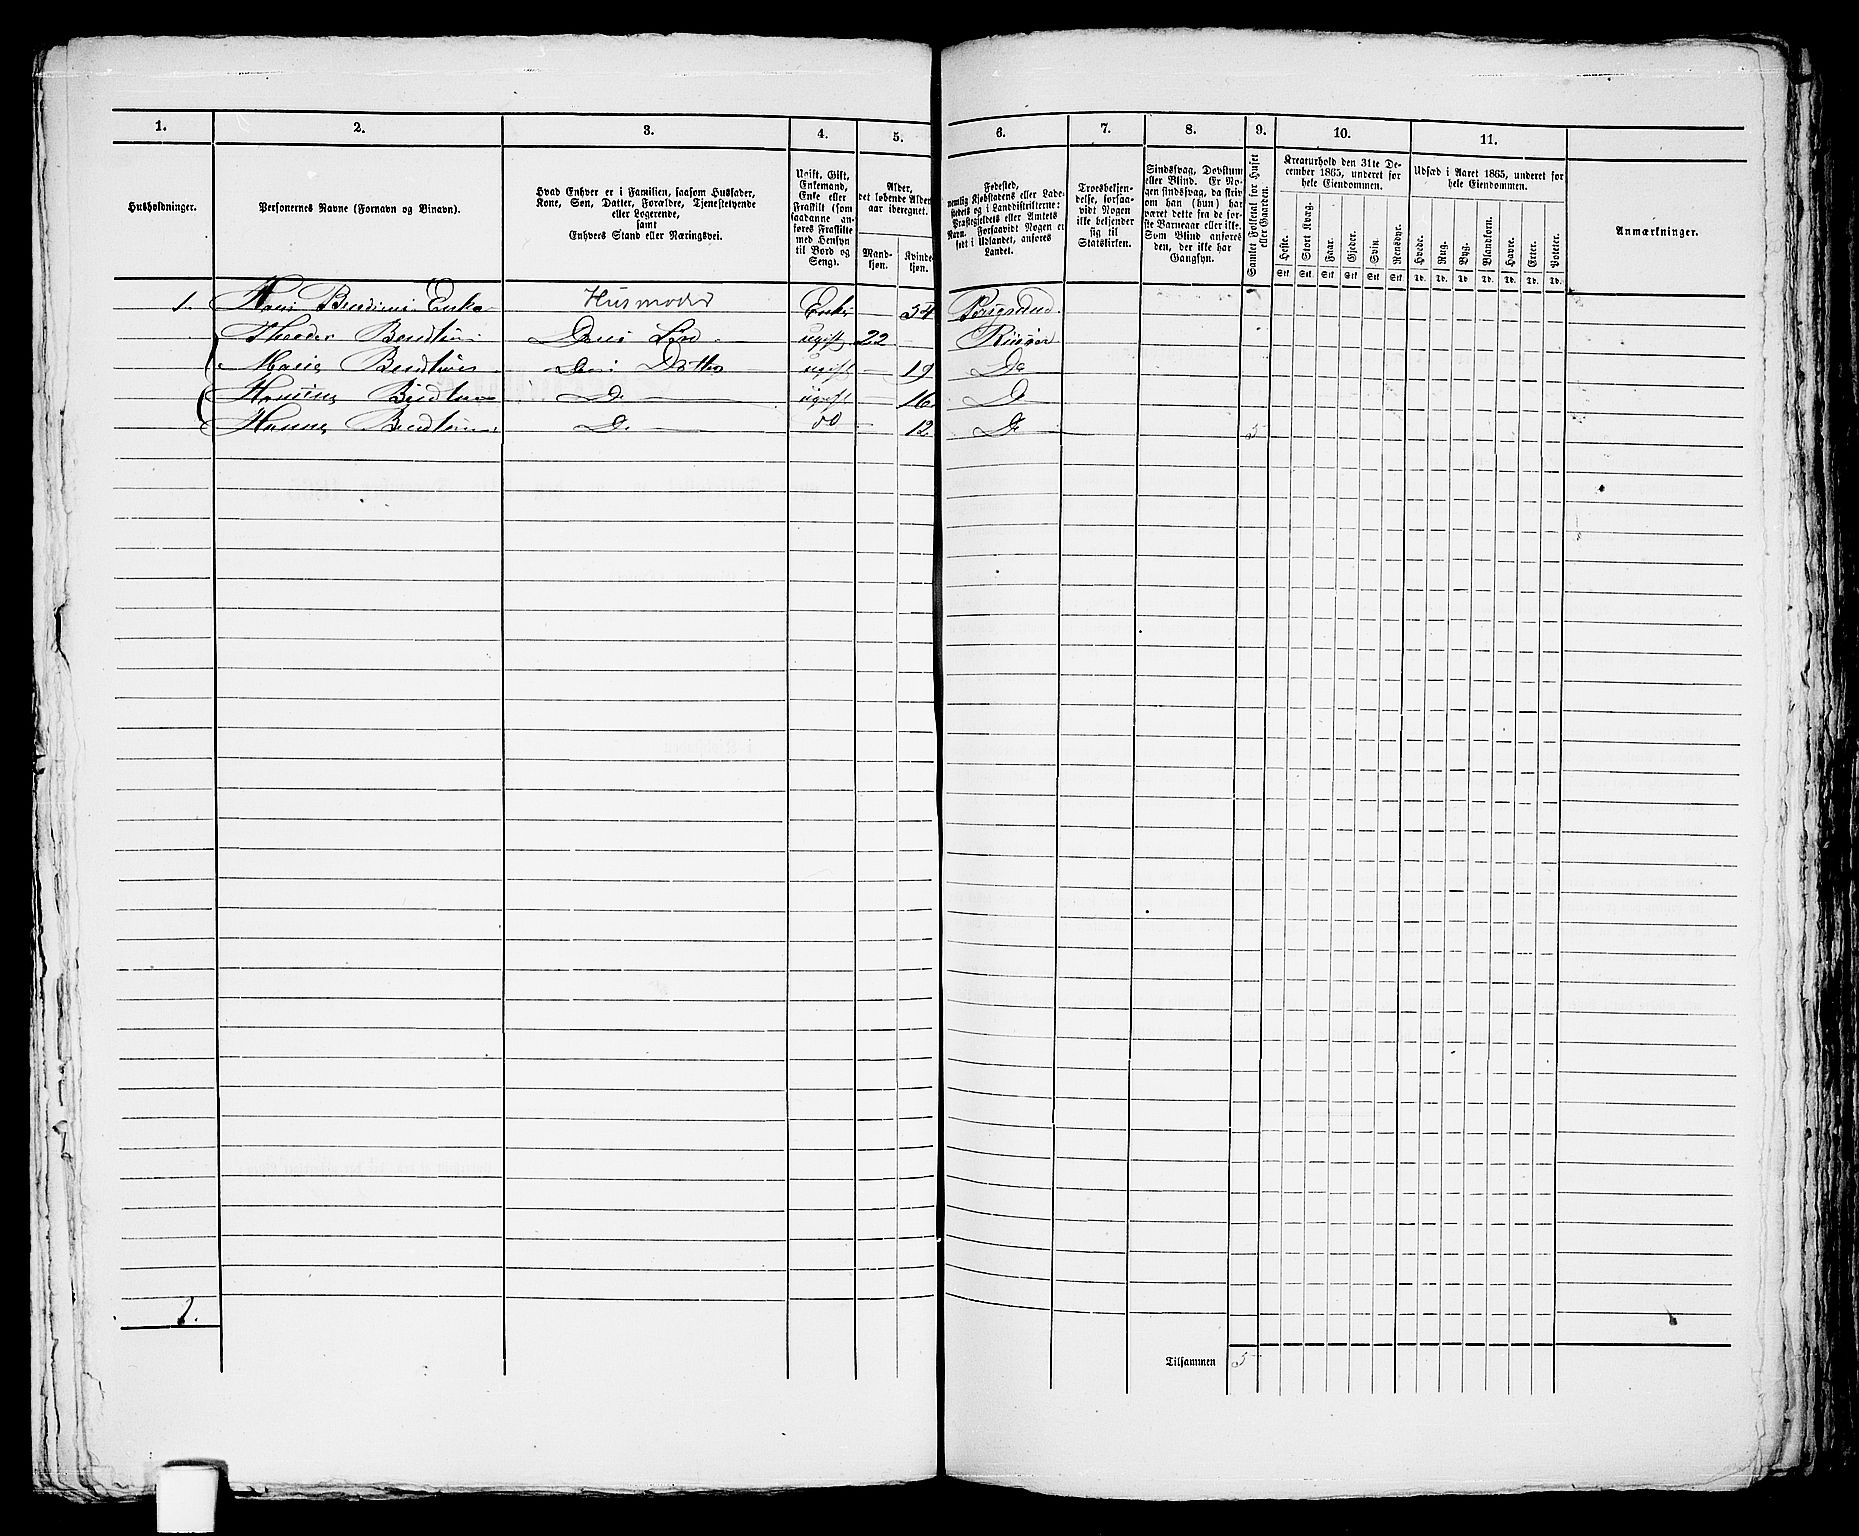 1. 2. 3. 4. 5. 6. 7. 8. 9. 10. 11.
Husholdninger.
Personernes Navne (Fornavn og Binavn).
Hvad Enhver er i Familien, saasom Husfader,
Kone, Søn, Datter, Forældre, Tjenestetyende
eller Logerende,
samt
Enhvers Stand eller Næringsvei.
Ugift, Gift,
Enkemand,
Enke eller
Fraskilt (som
saadanne an-
føres Fraskilte
med Hensyn
til Bord og
Seng).
Alder,
det løbende Alders-
aar iberegnet.
Mand-
kjøn.
Kvinde-
kjøn.
Fødested,
nemlig Kjøbstadens eller Lade-
stedets og i Landdistrikterne:
Præstegjeldets eller Amtets
Navn. Forsaavidt Nogen er
født i Udlandet, anføres
Landet.
Troesbekjen-
delse, forsaa-
vidt Nogen
ikke bekjender
sig til
Statskirken.
Sindssvag, Døvstum
eller Blind. Er No-
gen sindssvag, da skriv
om han (hun) har
været dette fra de før-
ste Barneaar eller ikke.
Som Blind anføres
den, der ikke har
Gangsyn.
Samlet Folketal for Huset
eller Gaarden.
Kreaturhold den 31te De-
cember 1865, underet for
hele Eiendommen.
Heste. Stort Kvæg. Faar. Gjeder. Svin. Rensdyr.
Stk. Stk. Stk. Stk. Stk. Stk.
Udsæd i Aaret 1865, underet for
hele Eiendommen.
Hvede. Rug. Byg. Blandkorn. Havre. Erter. Poteter.
Td. Td. Td. Td. Td. Td. Td.
Anmærkninger.
1. Husmoder Enke — 54
Theodor ugift 22 — Risør
Marie Datter ugift — 19 Do
Do ugift — 16 Do
Do do — 12 Do 5
1.
Tilsammen 5